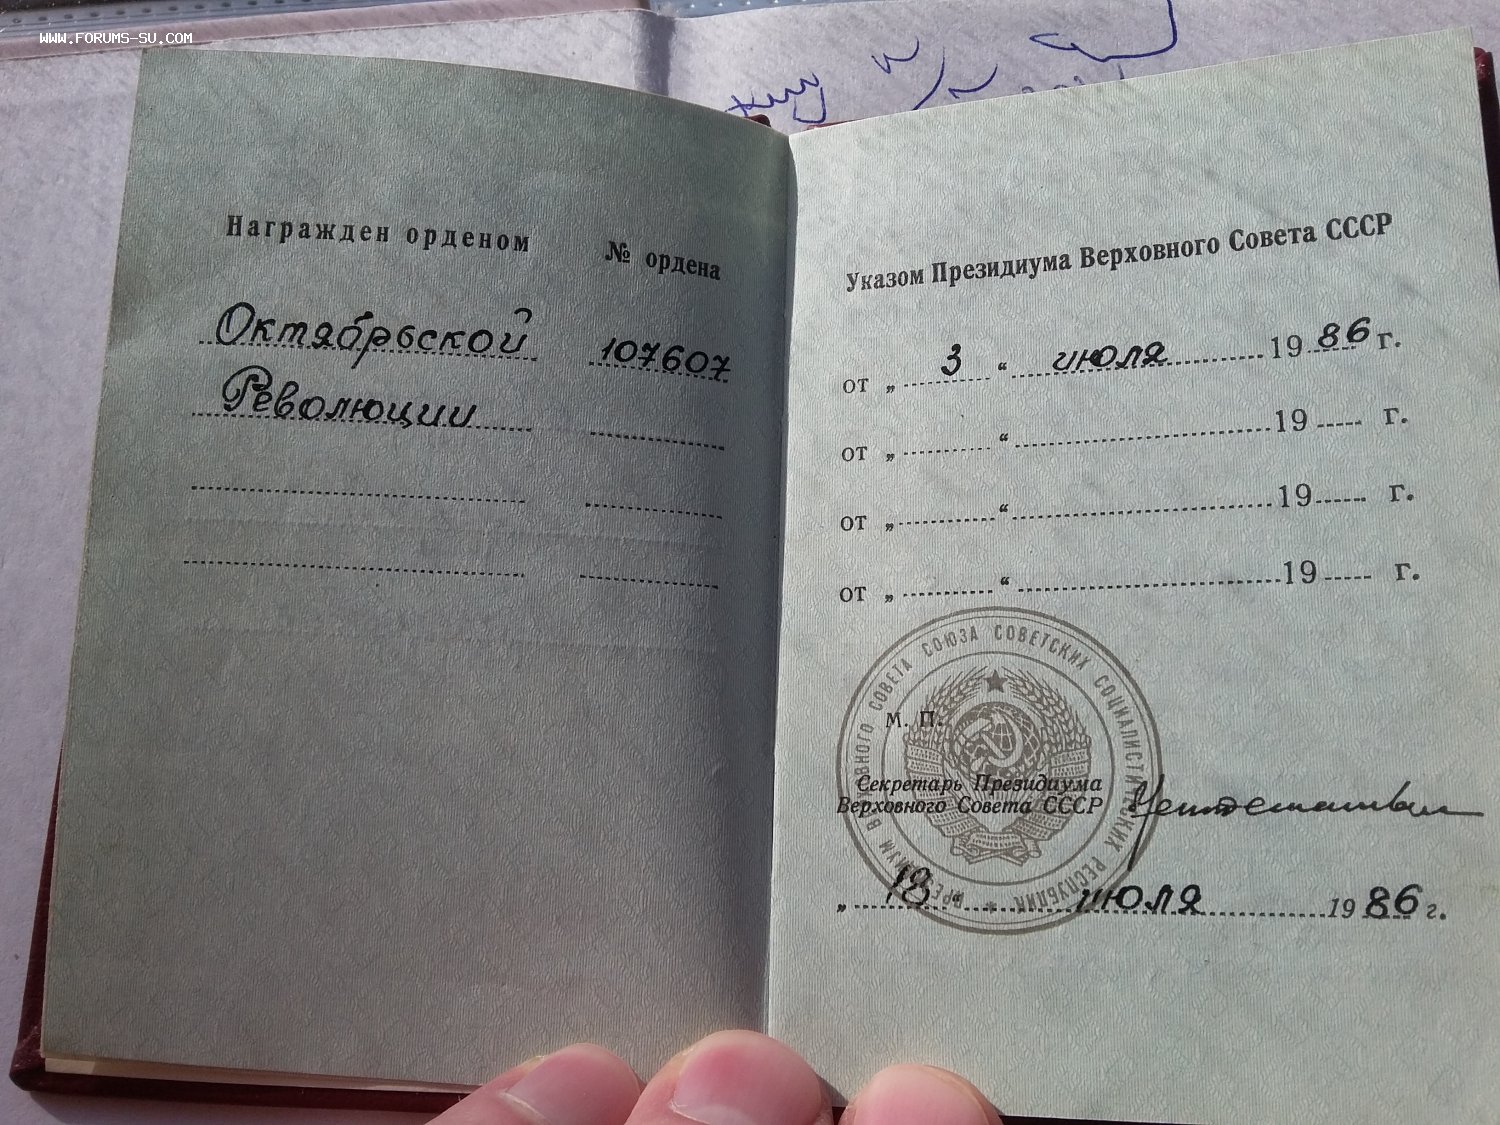 WWW.FORUMS-SU.COM
Награжден орденом № ордена
Октябрьской 107607
Революции
Указом Президиума Верховного Совета СССР
от „ 3 “ июля 19 86 г.
от „ “ 19 г.
от „ “ 19 г.
от „ “ 19 г.
ПРЕЗИДИУМ ВЕРХОВНОГО СОВЕТА СОЮЗА СОВЕТСКИХ СОЦИАЛИСТИЧЕСКИХ РЕСПУБЛИК
М. П.
Секретарь Президиума
Верховного Совета СССР
„ 18 “ июля 19 86 г.